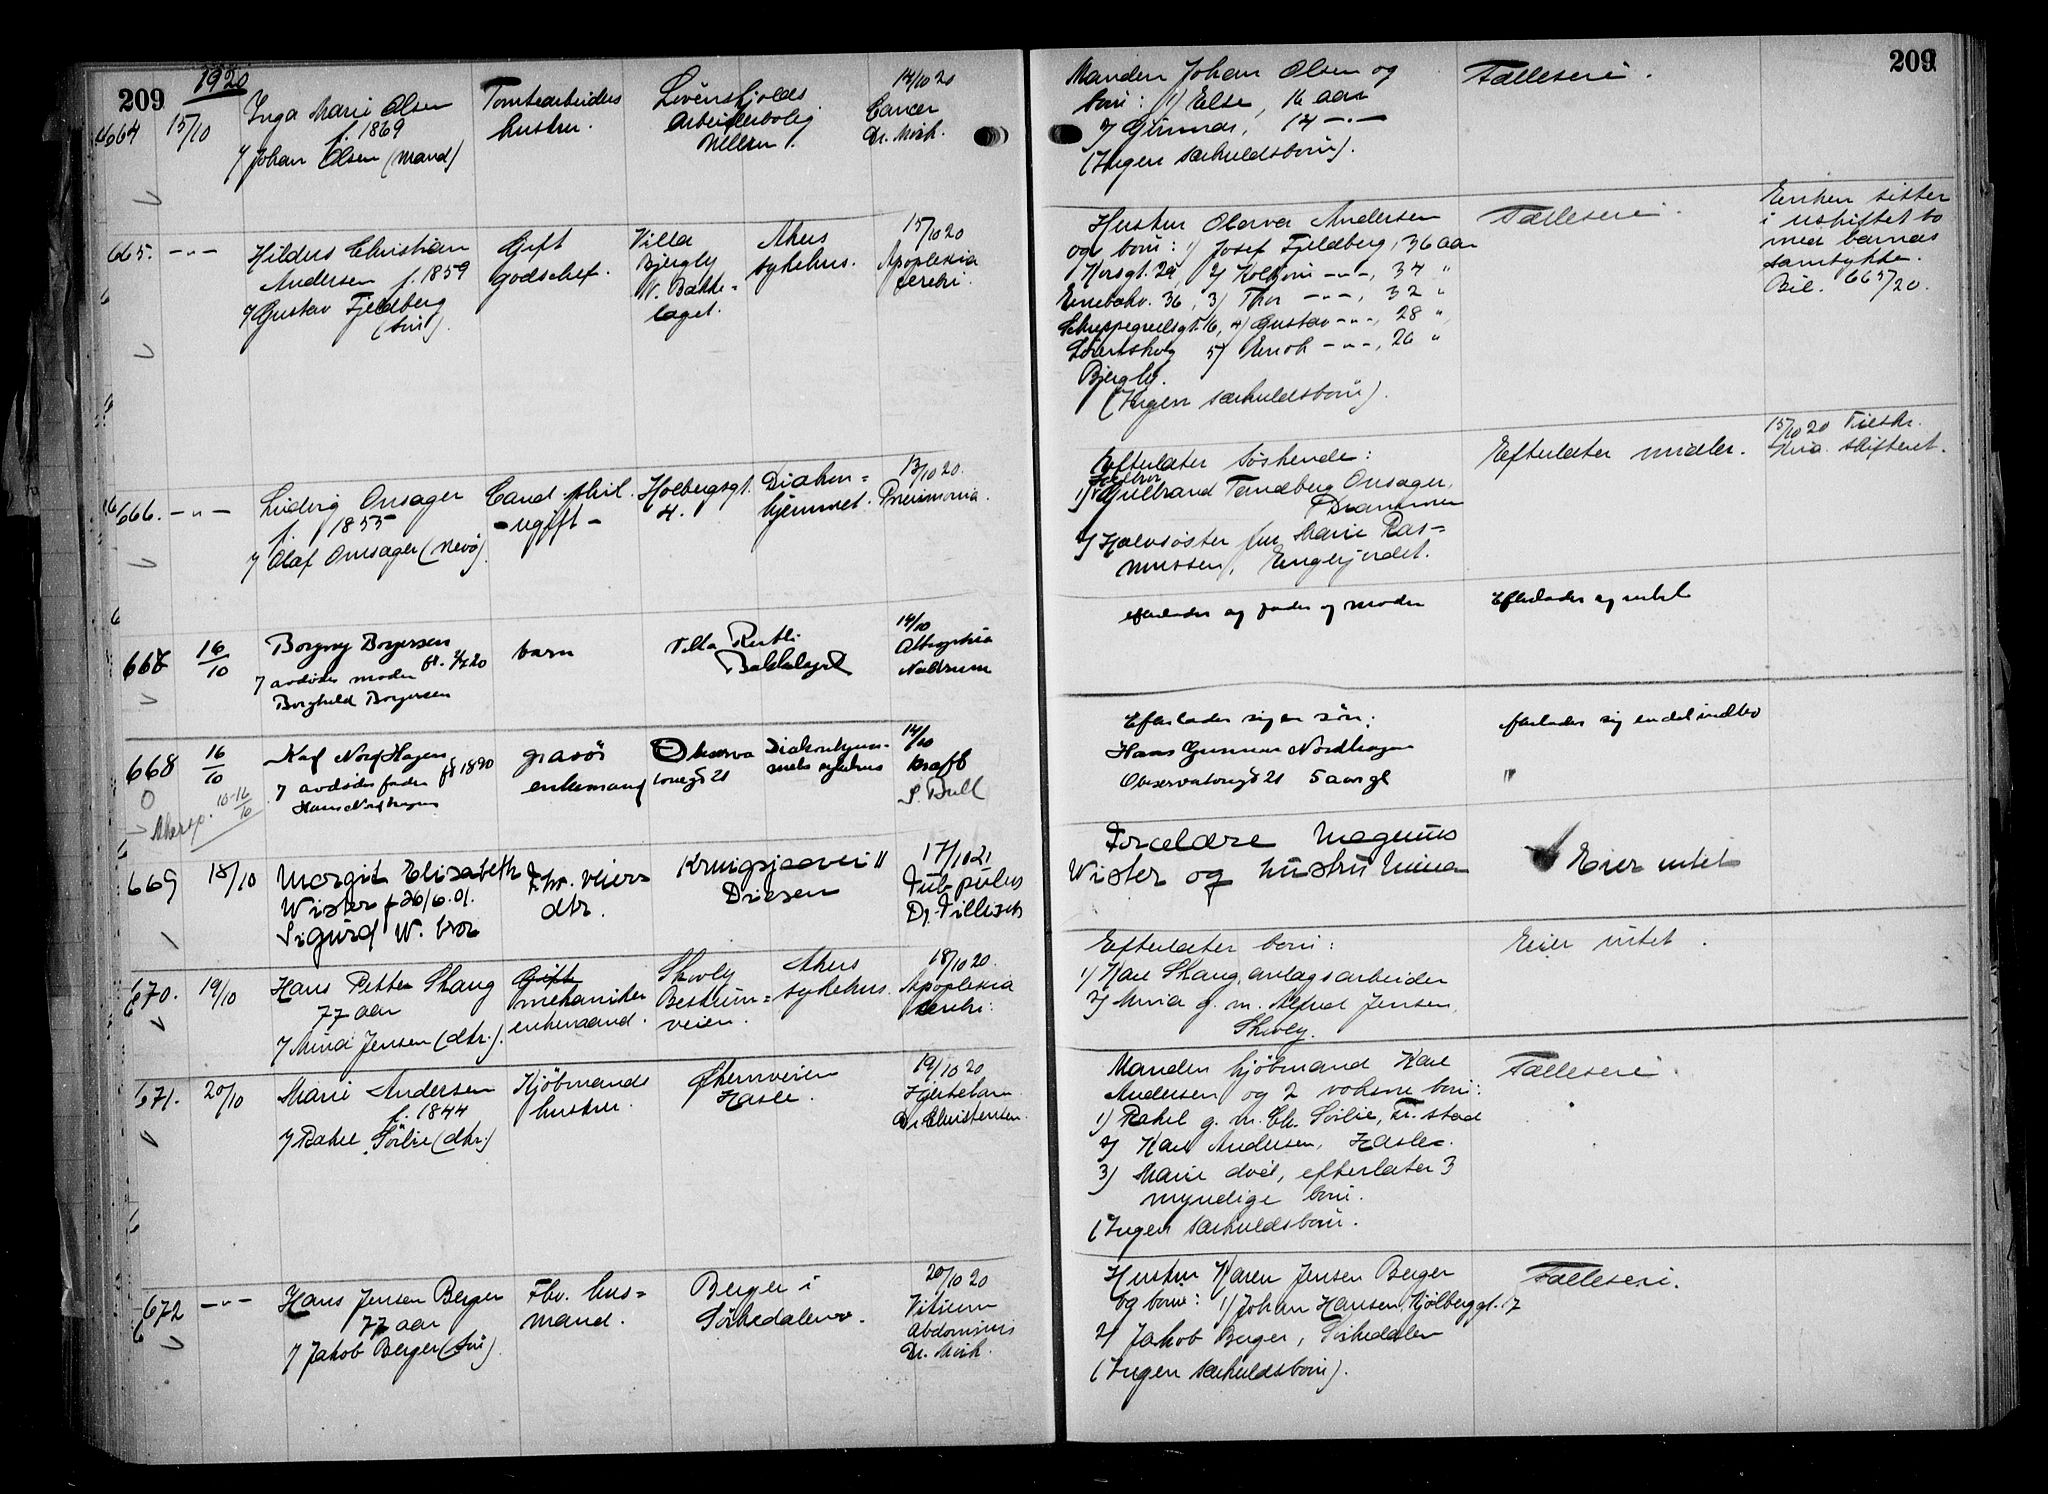 209
1920
664
15/10
Inga Marie Olsen
f. 1869
/ Johan Olsen (mand)
Tomtearbeiders
hustru.
Løvenskjolds
Arbeiderbolig
Ullern
14/10 20
Cancer
Dr. Mörk.
665.
-"-
Hildus Christian
Andersen f. 1859
/ Gustav Fjeldberg
(sön).
Gift
godschef.
Villa
Bjergly
N. Bække-
laget.
Akers
sykehus.
15/10 20
Apoplexia
cerebri.
666.
-"-
Ludvig Onsager
f. 1855
/ Olaf Onsager (nevö).
Cand. phil.
- ugift -
Holbergsgt.
4.
Diakon-
hjemmet.
13/10 20.
Pneumonia.
668
16/10
Borgny Borgersen
/ avdödes moder
Borghild Borgersen
barn
Villa Rutli
Bækkelaget
14/10
668
16/10
Karl Nordhagen
/ avdödes fader fd 1890
Hans Nordhagen
gravör
enkemand
Observa
toriegt 21
Diakonhjem-
mets sykehus
14/10
kræft
S. Bull
Akersp. 10-16/10
669
18/10
Margit Elisabeth
Wister f 26/6.01.
Sigurd W. bror
dtr.
Kringsjaavei 11
17/10 21
Tub pulm
670.
19/10
Hans Petter Skaug
77 aar
/ Mina Jensen (dtr.).
Gift
mekaniker
enkemand.
Skovly
Bestum-
veien.
Akers
sykehus.
18/10 20.
Apoplexia
cerebri.
671.
20/10
Marie Andersen
f. 1844
/ Rakel Sörlie (dtr.)
Kjöbmands
hustru.
Økernveien
Hasle.
19/10 20
Hjertelam.
Dr. Christensen.
672
-"-
Hans Jensen Berger
77 aar
/ Jakob Berger (sön).
Fhv. hus-
mand.
Berger i
Sörkedalen.
20/10 20
Vitium
abdominis
Dr. Mörk.
209
Manden Johan Olsen og
börn: 1) Else, 16 aar
2) Gunnar, 14 -"-
(Ingen særkuldsbörn).
Fælleseie.
Hustru Olava Andersen
og börn: 1) Josef Fjeldberg, 36 aar
Korsgt. 29, 2) Kolbjörn -"-, 34 "
Ennebakv. 36, 3) Thor -"-, 32 "
Schweppegrellsgt. 16, 4) Gustav -"-, 28 "
5) Enok -"-, 26 "
Bjergly.
(Ingen særkuldsbörn).
Fælleseie.
Enken sitter
i uskiftet bo
med barnas
samtykke.
Bil. 665/20.
Efterlater söskende:
Halvbror
1) Gulbrand Tandberg Onsager,
Drammen
2) Halvsöster fru Marie Ras-
mussen, Engerjordet.
Efterlater midler.
15/10 20 Tilskr.
Kria. skifteret.
efterlader sig fader og moder
Efterlader sig intet
Efterlader sig en sön:
Hans Gunnar Nordhagen
Observatoriegt 21 5 aar gl
efterlader sig en del indbo
"
Forældre Magnus
Wister og hustru Mina
Eier intet
Efterlater börn:
1) Karl Skaug, anlægsarbeider
2) Mina g. m. Alfred Jensen,
Skovly.
Eier intet.
Manden kjöbmand Karl
Andersen og 2 voksne börn:
1) Rakel g. m. Chr. Sörlie, Fr. stad
2) Karl Andersen, Hasle.
3) Marie död, efterlater 3
myndige börn.
(Ingen særkuldsbörn.
Fælleseie.
Hustru Karen Jensen Berger
og börn: 1) Johan Hansen, Kjölberggt. 17
2) Jakob Berger, Sörkedalen
(Ingen særkuldsbörn).
Fælleseie.